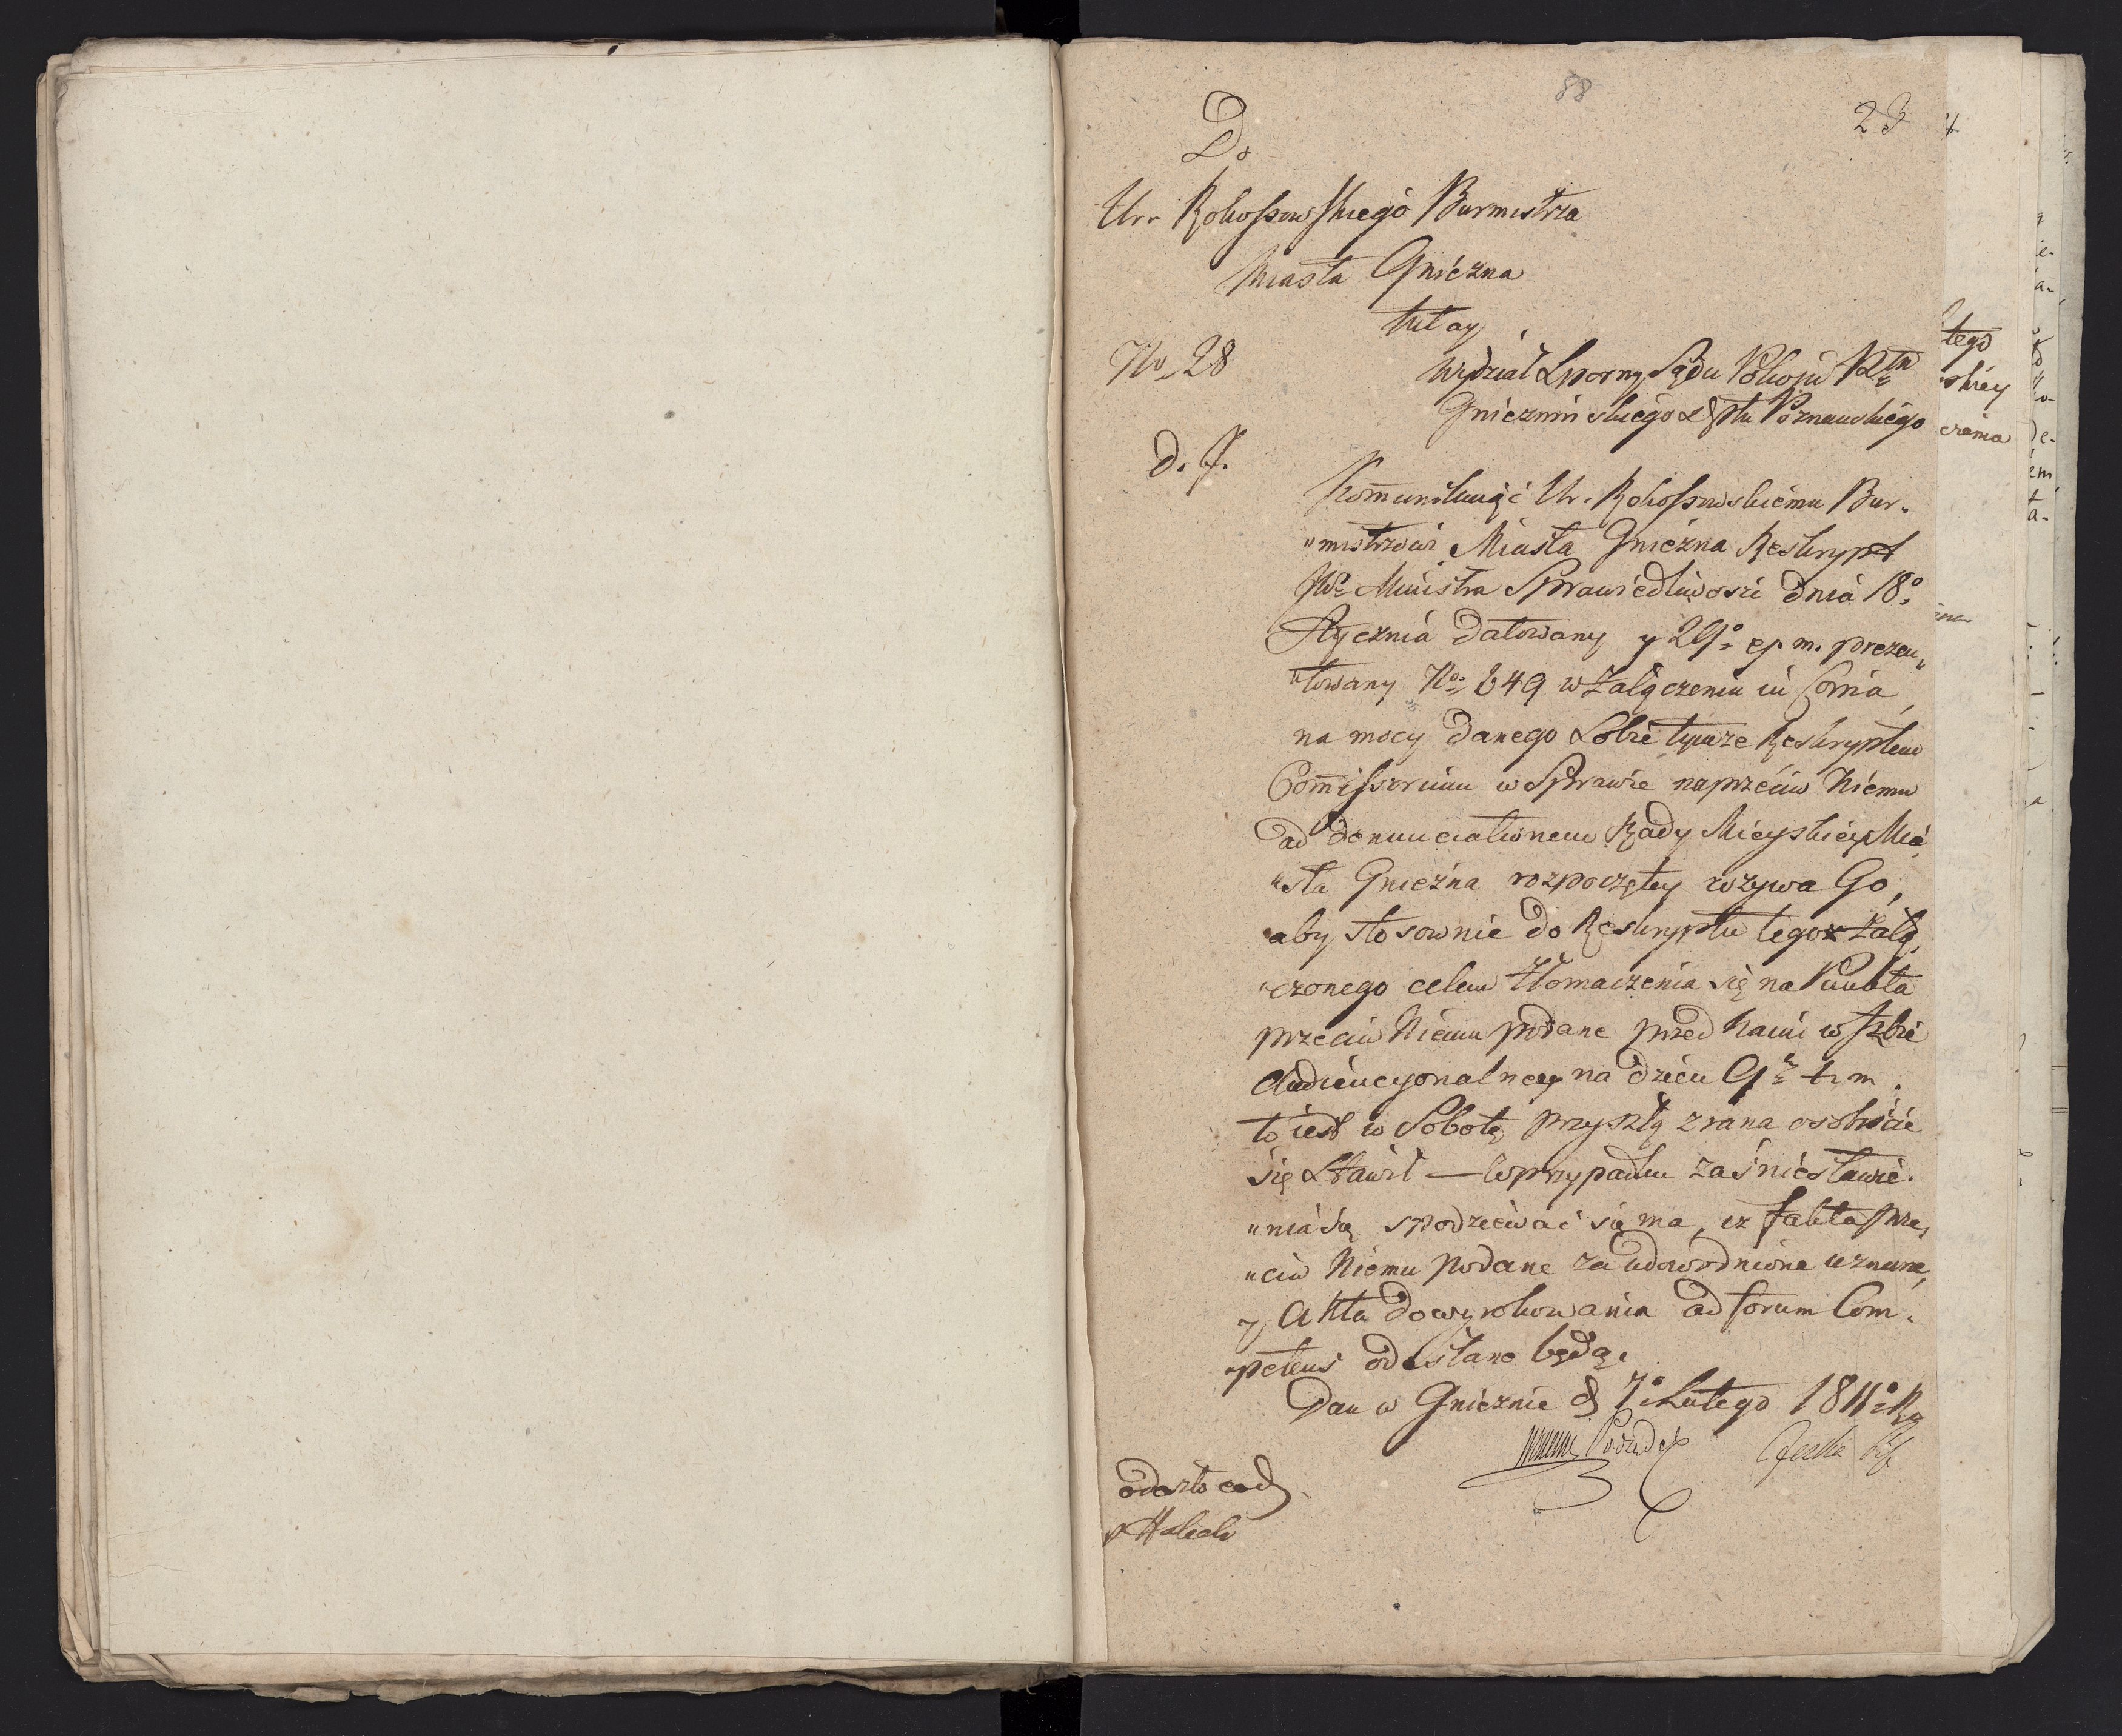 88
23
Do
Ur. Rokossowskiego Burmistrza
Miasta Gniezna
tutay
No 28
Wydział Sporny Sądu Pokoju Pttu
Gnieznińskiego Dptu Poznanskiego
d. J.
Kommunikuiąc Ur. Rokossowskiemu Bur-
"mistrzowi Miasta Gniezna Reskrypt
JWo Ministra Sprawiedliwosci dnia 18o
Stycznia datowany y 29o ej. m. prezen"
"towany No 649 w Załączeniu in Copia,
na mocy danego Sobie tymże Reskryptem
Commissorium w Sprawie naprzeciw Niemu
ad denunciationem Rady Mieyskiey Mia"
"sta Gniezna rozpoczętey wzywa Go,
aby stosownie do Reskryptu tegoż Załą"
"czonego celem tłomaczenia się na Punkta
przeciw Niemu podane przed Nami w Izbie
Audiencyonalney na dzień 9o t. m.
to iest w Sobotę przyszłą z rana osobiście
się Stawił — W przypadku zaś niestawie-
"nia się spodziewać się ma, iz fakta prze"
"ciw Niemu podane za udowodnione uznane,
y Akta do wyrokowania ad forum Com-
"petens odesłane będą.
Dan w Gnieznie d 7o Lutego 1811o Ru
odeszło eod